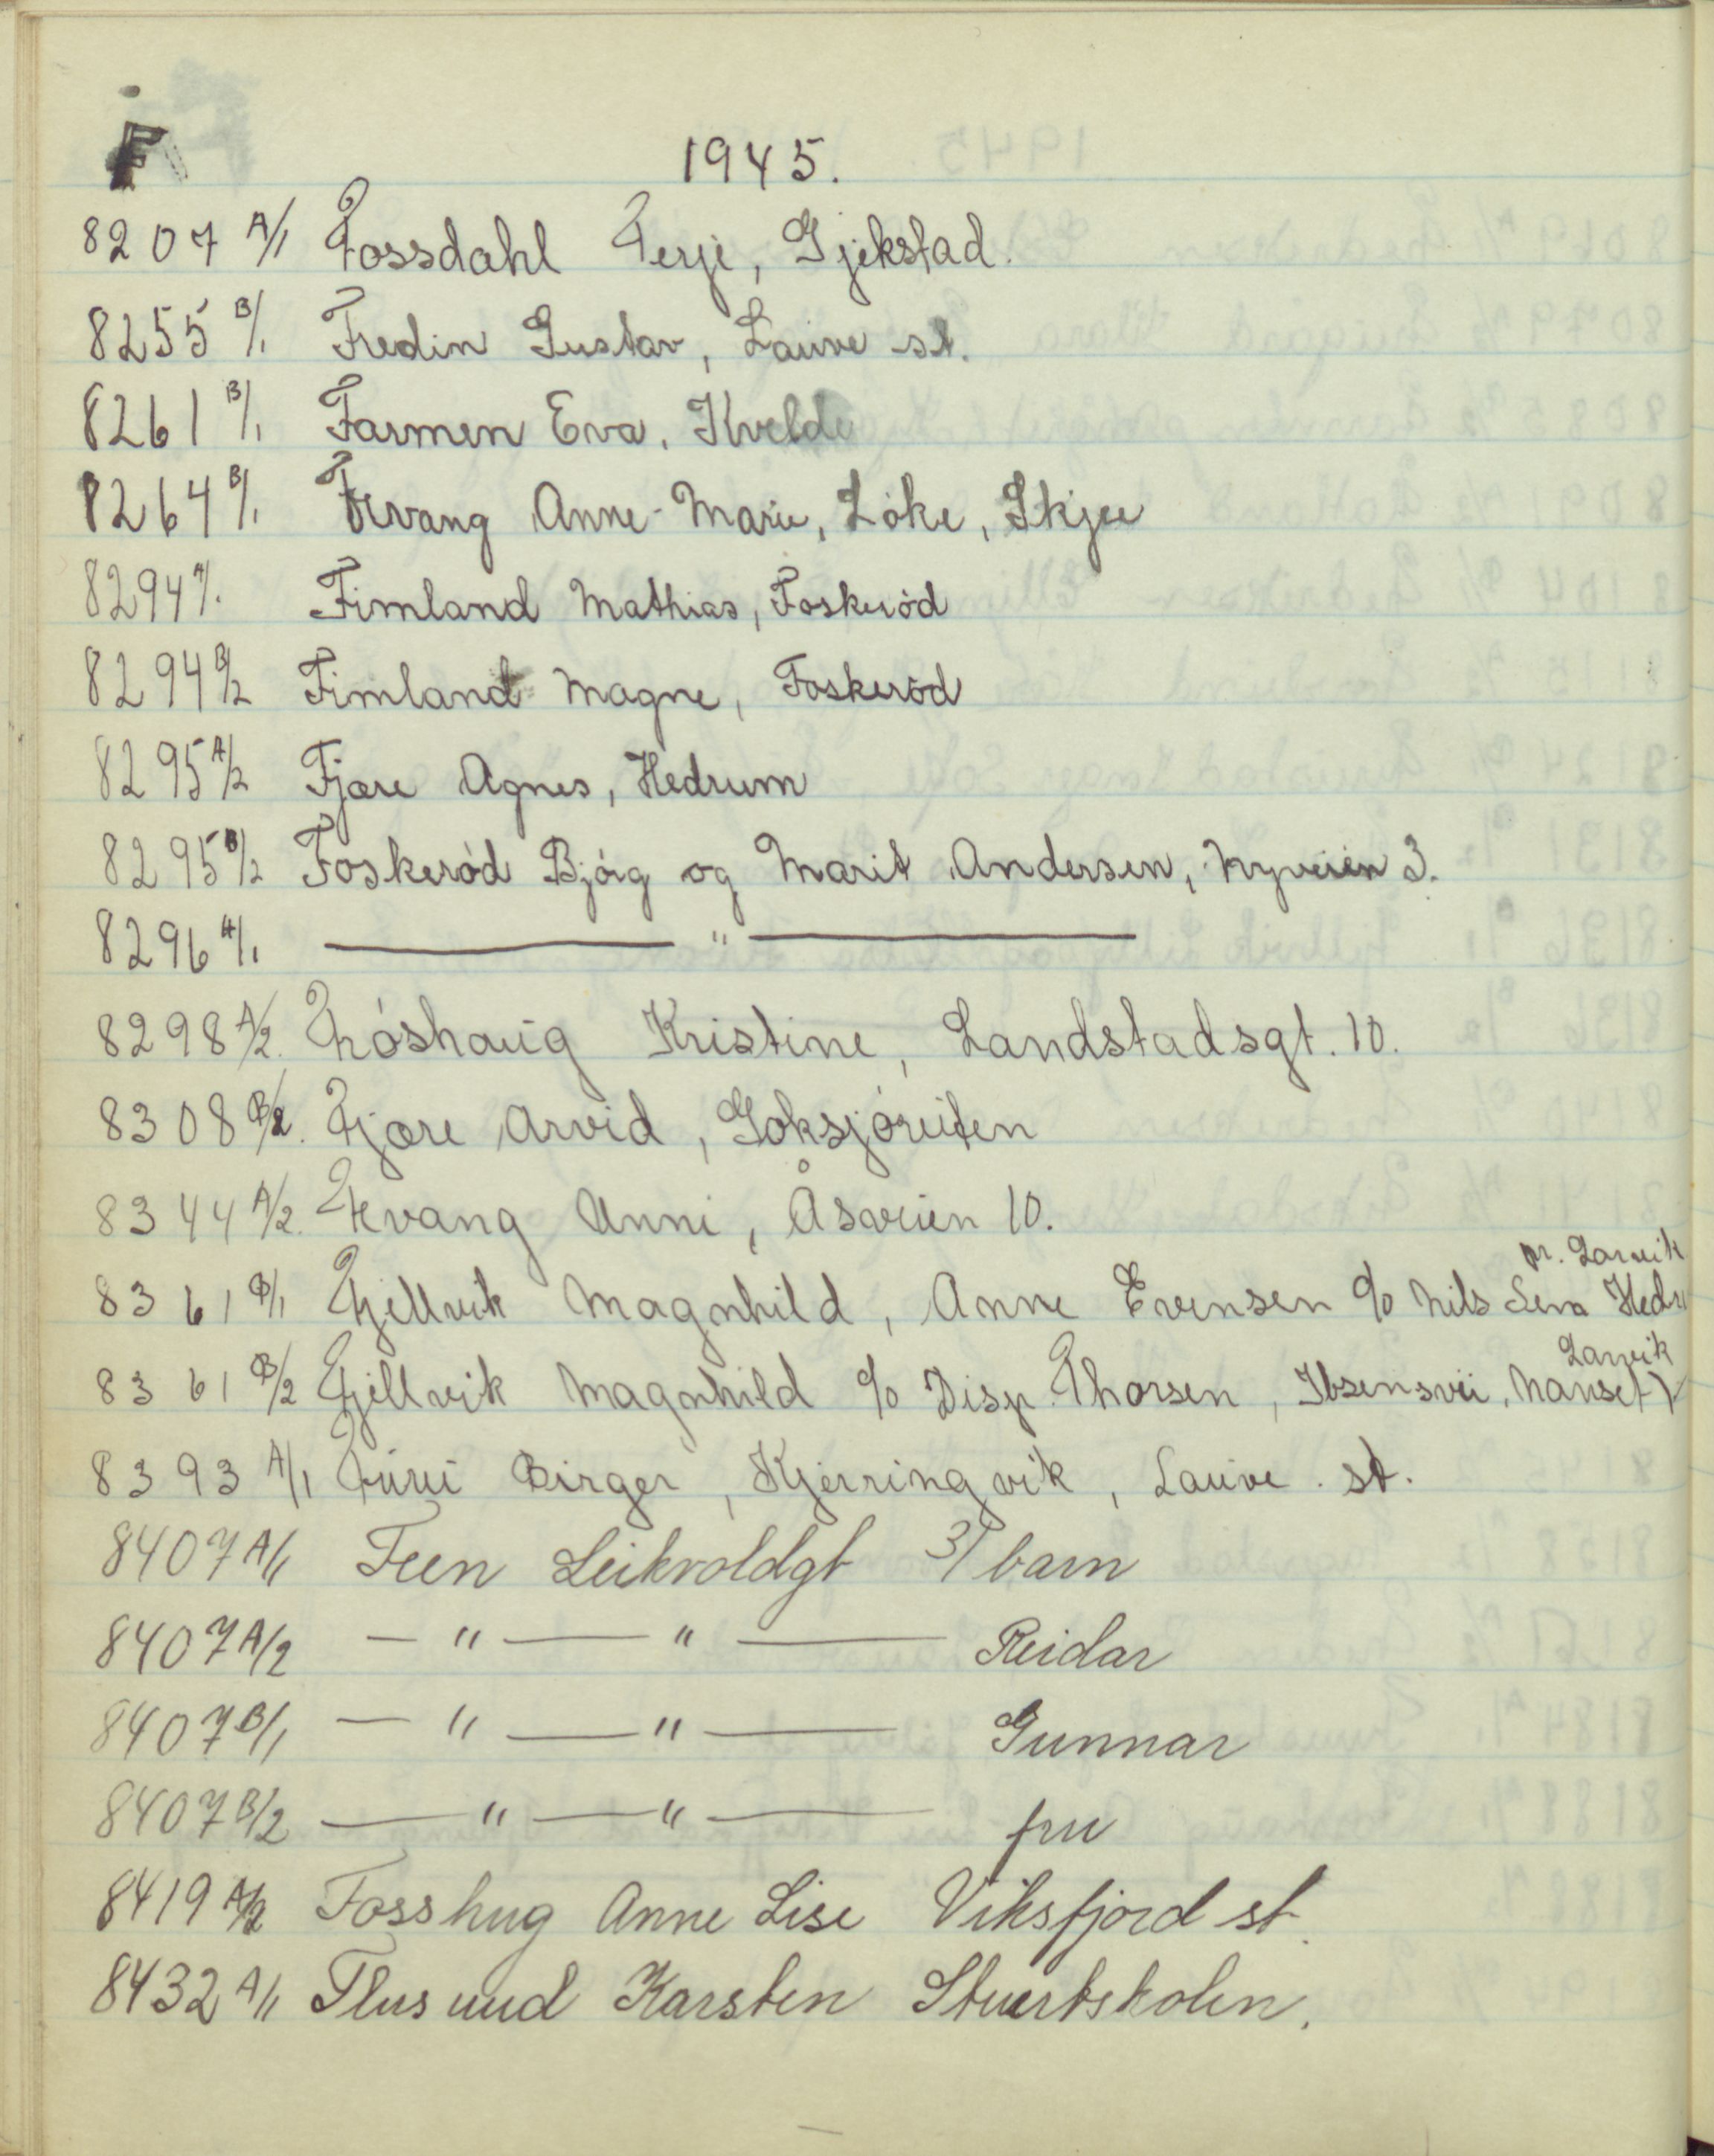 F
1945.
8207 A/1 Fossdahl Terje, Gjekstad.
8255 B/1 Fredin Gustav, Lauve st.
8261 B/1 Farmen Eva, Kvelde
8264 B/1 Fevang Anne-Marie, Løke, Skjee
8294 A/1. Fimland Mathias, Foskerød
8294 B/2 Fimland Magne, Foskerød
8295 A/2 Fjære Agnes, Hedrum
8295 B/2 Foskerød Bjørg og Marit Andersen, Nyveien 3.
8296 A/1. — " —
8298 A/2. Frøshaug Kristine, Landstadsgt. 10.
8308 B/2. Fjære Arvid, Goksjøreiten
8344 A/2. Fevang Unni, Åsaveien 10.
pr. Larvik
8361 B/1 Fjellvik Magnhild, Anne Evensen c/o Nils Hedr
Larvik
8361 B/2 Fjellvik Magnhild c/o Disp. Thorsen, Ibsensvei, Nanset
8393 A/1 Furui Birger, Kjerringvik, Lauve st.
8407 A/1 Feen Leikvoldgt 3/ barn
8407 A/2 — " — " — Reidar
8407 B/1 — " — " — Gunnar
8407 B/2 — " — " — fru
8419 A/2 Fosshug Anne Lise Viksfjord st.
8432 A/1 Karsten Stuertskolen.